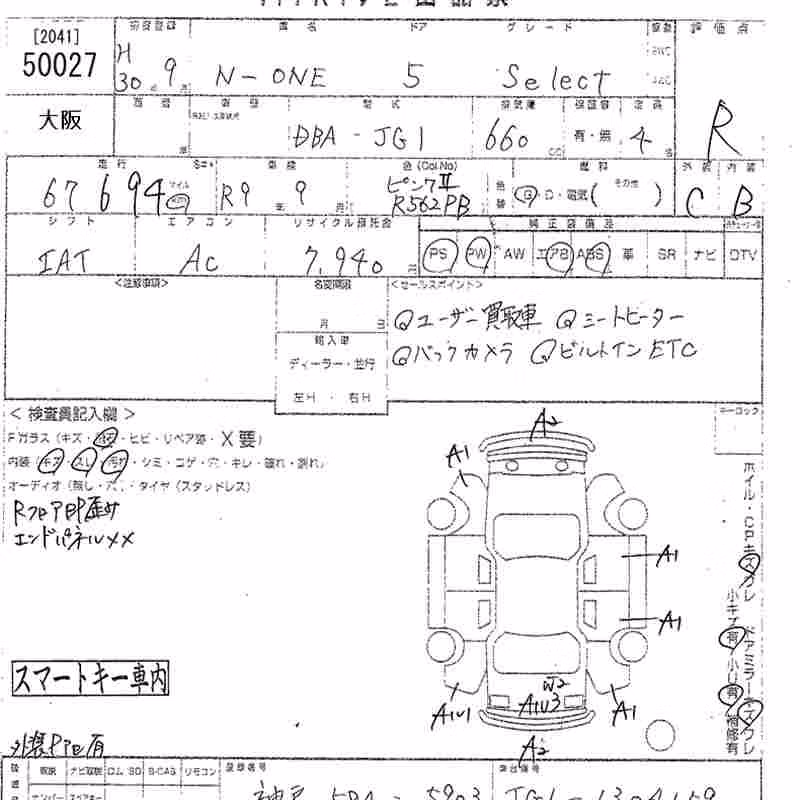 [2041] 初度登録 車名 ドア グレード 評価点
50027 H30 9月 N-ONE 5 Select R
大阪
型式 排気量 定員
DBA-JG1 660cc 有・無 4名
走行 車検 色(Col.No) 燃料 外装 内装
67,694 マイル R9年 9月 ピンクII G・D・電気( その他 ) C B
R562PB
シフト エアコン リサイクル預託金 純正装備品
IAT AC 7,940円 PS PW AW エアB ABS 革 SR ナビ DTV
<注意事項> 名変期限 <セールスポイント>
月 日 ユーザー買取車 シートヒーター
輸入車 バックカメラ ビルトインETC
ディーラー・並行
左H ・ 右H
<検査員記入欄> キーロック
Fガラス(キズ・飛石・ヒビ・リペア跡・X要)
内装(キズ・スレ・汚れ・シミ・コゲ・穴・キレ・破れ・割れ)
オーディオ(無し・穴)・タイヤ(スタッドレス)
Rフロア凹歪サ
エンドパネルXX
A2
A1
A1
A1
W2
A1U1 A1U3 A1
A2
ホイル・CPキズカレ
小キズ有/小U有/補修有
ドアミラーキズワレ
スマートキー車内
外装P跡有
取説 ナビ取説 ロム SD B-CAS リモコン 登録番号 車台番号
ナンバー スペアキー 神戸 JG1-